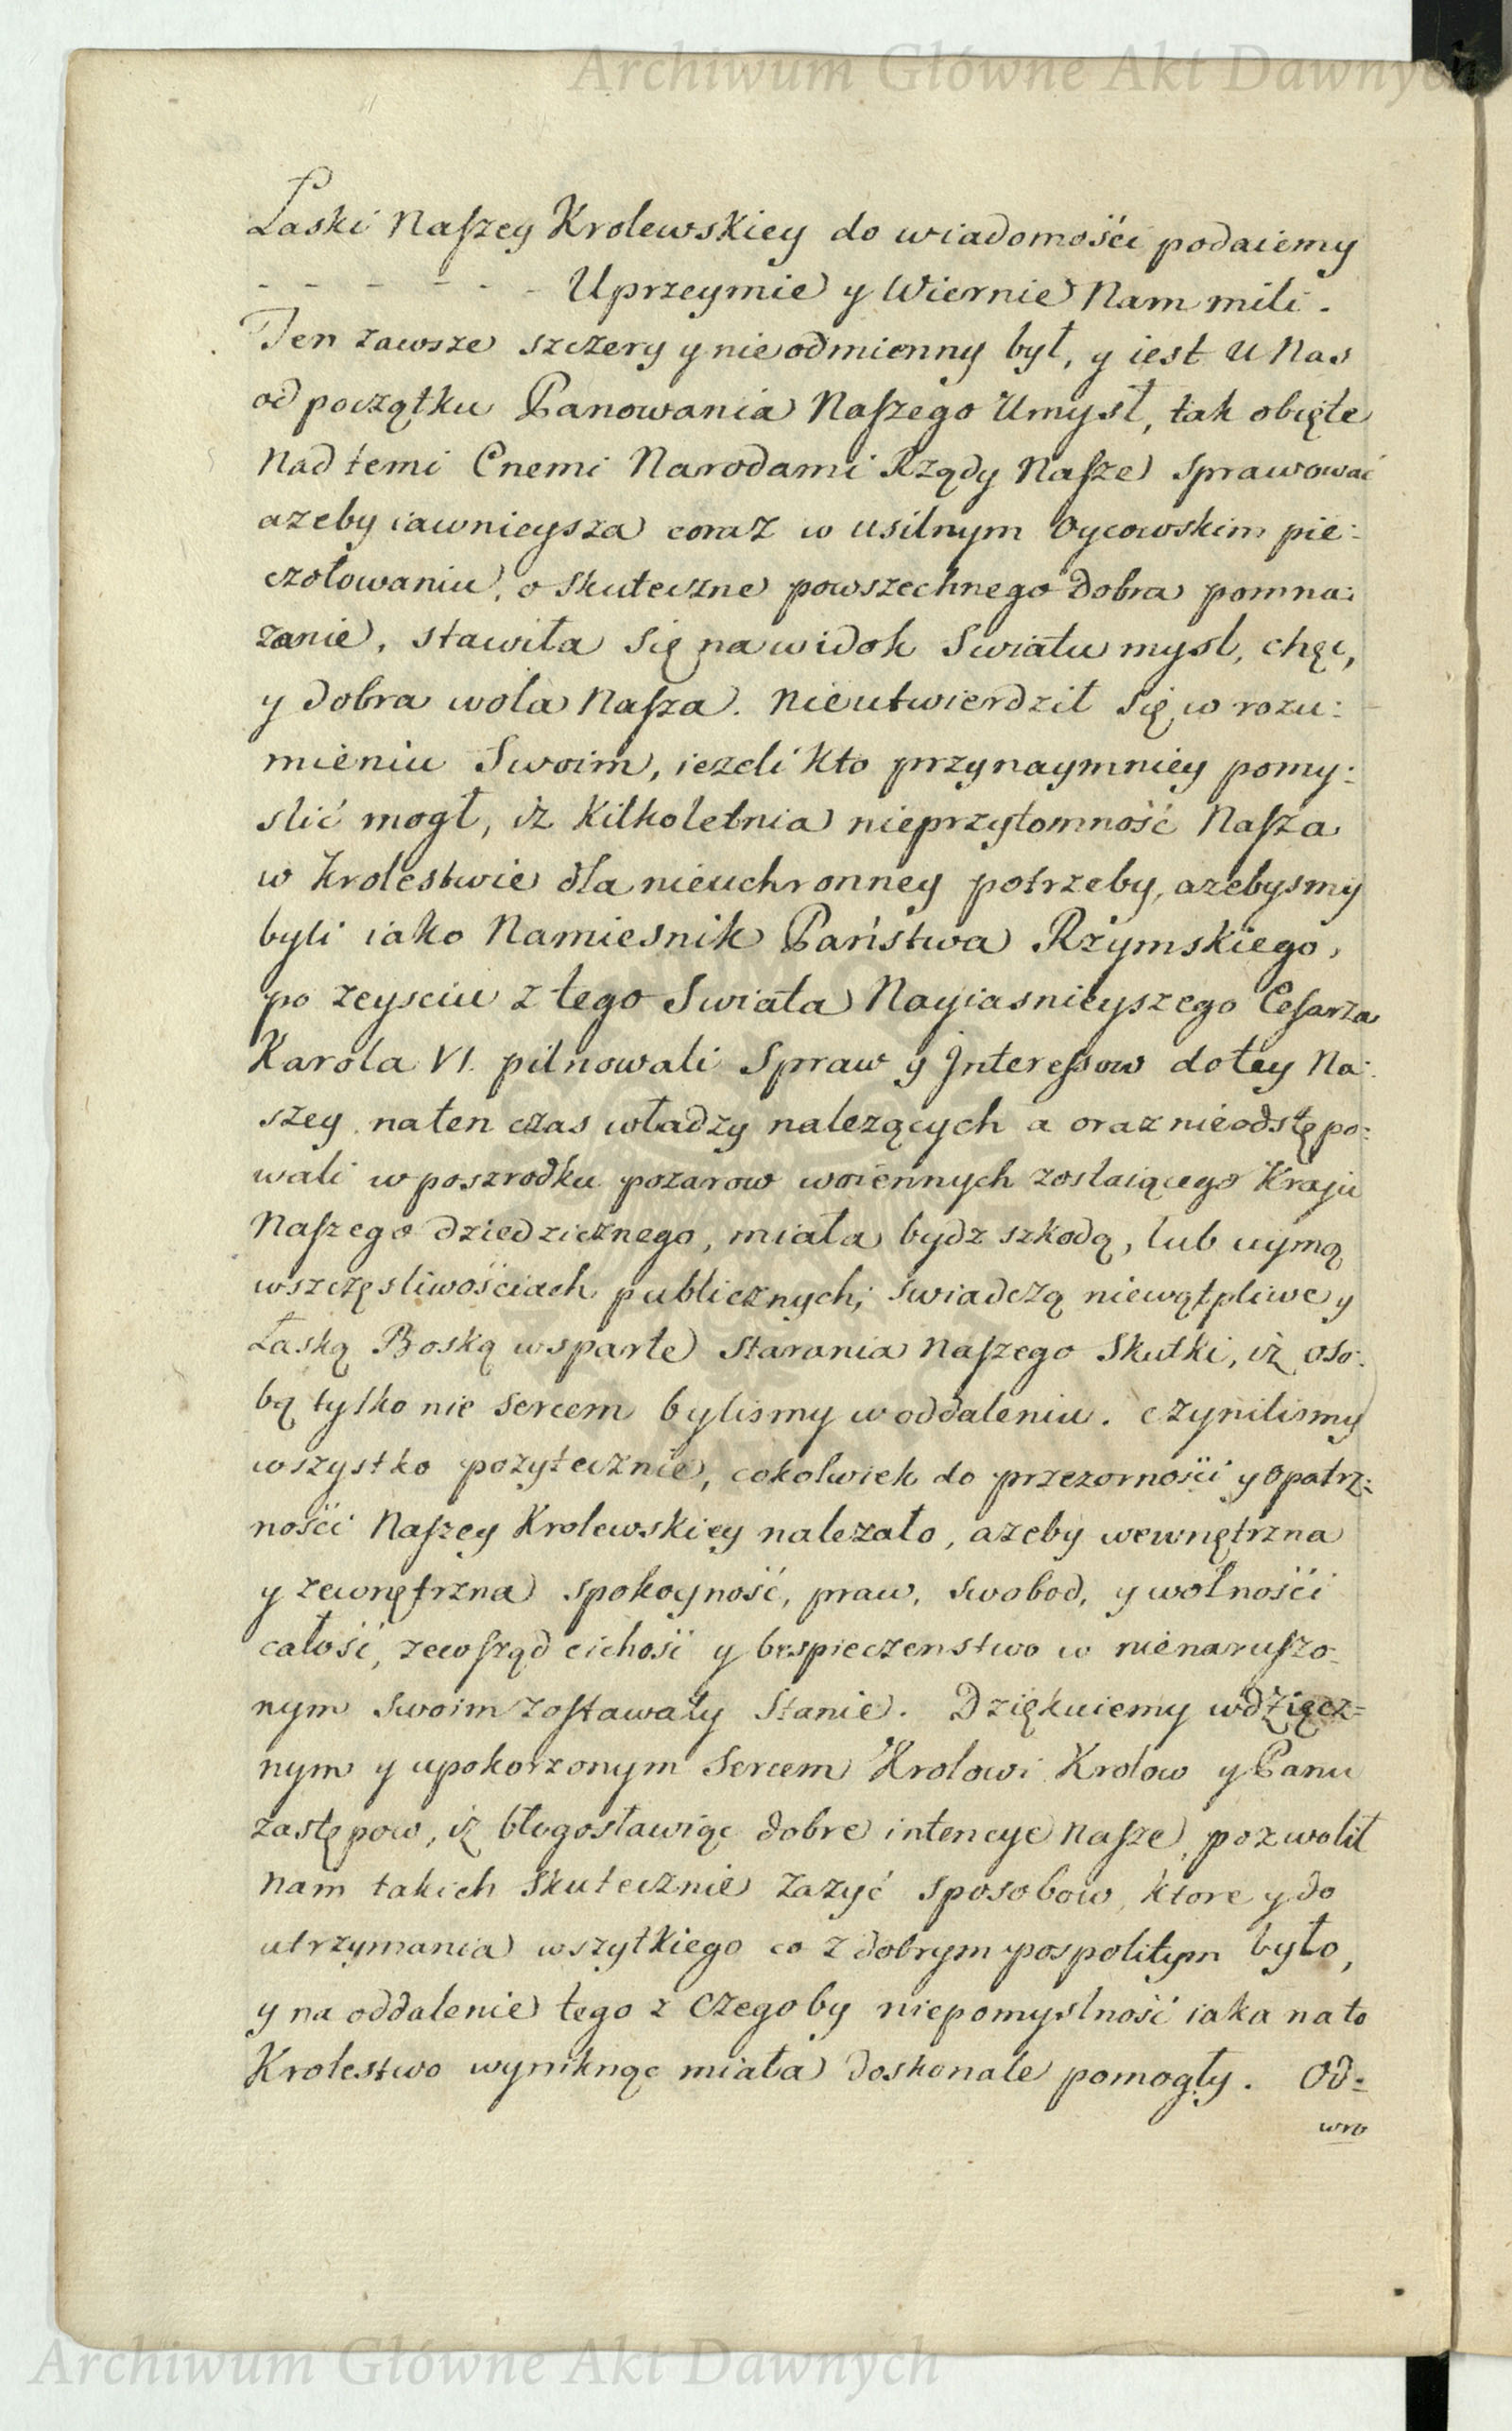 Archiwum Główne Akt Dawnych
Łaski Naſzey Krolewskiey do wiadomośći podaiemy
- - - - - - - Uprzeymie y Wiernie Nam mili.
Ten zawsze szczery y nieodmienny był, y iest u Nas
od początku Panowania Naſzego Umysł, tak obięte
Nad temi Cnemi Narodami Rządy Naſze sprawować
azeby iawnieysza coraz w usilnym Oycowskim pie:
czołowaniu, o skuteczne powszechnego dobra pomna:
zanie, stawiła się na widok Swiatu mysl, chęc,
y dobra wola Naſza. Nieutwierdził się w rozu:
mieniu Swoim, iezeli kto przynaymniey pomy:
slić mogł, iż kilkoletnia nieprzytomność Naſza
w Krolestwie dla nieuchronney potrzeby, azebysmy
byli iako Namiesnik Państwa Rzymskiego,
po zeysciu z tego Swiata Nayiasnieyszego Ceſarza
Karola VI. pilnowali Spraw y Intereſsow do tey Na:
szey na ten czas władzy nalezących a oraz nieodstępo:
wali w poszrodku pozarow woiennych zostaiącego Kraju
Naſzego dziedzicznego, miała bydz szkodą, lub uymą
w szczęsliwośćiach publicznych; swiadczą niewątpliwe y
Łaską Boską wsparte starania Naſzego Skutki, iż oso:
bą tylko nie sercem bylismy w oddaleniu. Czynilismy
wszystko pozytecznie, cokolwiek do przezornośći y opatrz:
nośći Naſzey Krolewskiey nalezało, azeby wewnętrzna
y zewnętrzna spokoyność, praw, swobod, y wolnośći
całość, zewſząd cichość y bespieczenstwo w nienaruſzo:
nym swoim zoſtawały Stanie. Dziękuiemy wdzięcz=
nym y upokorzonym Sercem Krolowi Krolow y Panu
zastępow, iż błogosławiąc dobre intencye Naſze, pozwolił
Nam takich skutecznie zazyć sposobow, ktore y do
utrzymania wszytkiego co z dobrym pospolitym było,
y na oddalenie tego z czegoby niepomyslność iaka na to
Krolestwo wyniknąc miała doskonale pomogły. Od=
wro
Archiwum Główne Akt Dawnych